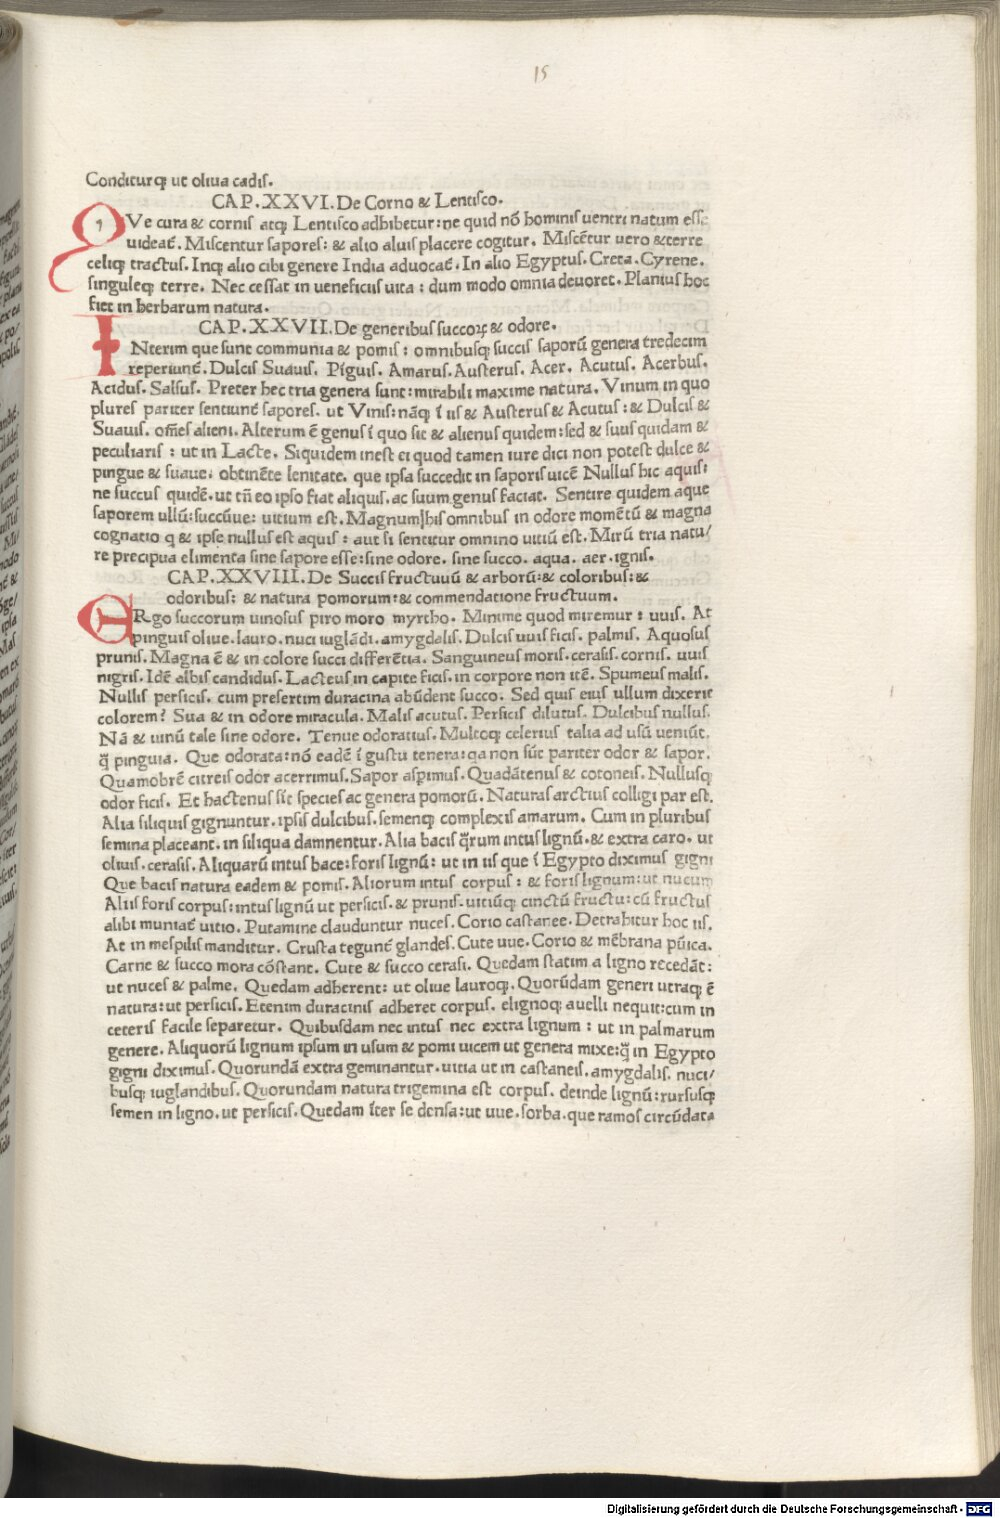 15
Conditurqꝫ ut oliua cadis.
CAP.XXVI.De Corno & Lentisco.
QVe cura & cornis atqꝫ Lentisco adhibetur:ne quid nō hominis uentri natum esse
uideat᷑. Miscentur sapores: & alio aliuſ placere cogitur. Miscēt̄ur uero & terre
celiqꝫ tractus. Inqꝫ alio cibi genere India aduocat᷑. In alio Egyptus. Creta. Cyrene.
singuleqꝫ terre. Nec cessat in ueneficiis uita: dum modo omnia deuoret. Planius hoc
fiet in herbarum natura.
CAP.XXVII.De generibus succoꝝ & odore.
INterim que sunt communia & pomis: omnibusqꝫ succis saporū genera tredecim
reperiunt᷑. Dulcis Suauis. Pīguis. Amarus. Austerus. Acer. Acutus. Acerbus.
Acidus. Salsus. Preter hec tria genera sunt:mirabili maxime natura. Vinum in quo
plures pariter sentiunt᷑ sapores. ut Vinis:nāqꝫ ī iis & Austerus & Acutus:& Dulcis &
Suauis. om̄es alieni. Alterum ē genus ī quo sit & alienus quidem:sed & suus quidam &
peculiaris: ut in Lacte. Siquidem inest ei quod tamen iure dici non potest dulce &
pingue & suaue: obtinēte lenitate. que ipsa succedit in saporis uicē Nullus hic aquis:
ne succus quidē. ut tn̄ eo ipso fiat aliquis. ac suum genus faciat. Sentire quidem aque
saporem ullū:succūue: uitium est. Magnum]his omnibus in odore momētū & magna
cognatio q & ipse nullus est aquis: aut si sentitur omnino uitiū est. Mirū tria natu/
re precipua elimenta sine sapore esse:sine odore. sine succo. aqua. aer. ignis.
CAP.XXVIII.De Succis fructuuū & arborū:& coloribus:&
odoribus: & natura pomorum:& commendatione fructuum.
ERgo succorum uinosus piro moro myrtho. Minime quod miremur: uuis. At
pinguis oliue. lauro. nuci iuglādi. amygdalis. Dulcis uuis ficis. palmis. Aquosus
prunis. Magna ē & in colore succi differētia. Sanguineus moris. cerasis. cornis. uuis
nigris. Idē albis candidus. Lacteus in capite ficis. in corpore non itē. Spumeus malis.
Nullis persicis. cum presertim duracina abūdent succo. Sed quis eius ullum dixerit
colorem? Sua & in odore miracula. Malis acutus. Persicis dilutus. Dulcibus nullus.
Nā & uinū tale sine odore. Tenue odoratius. Multoqꝫ celerius talia ad usū ueniūt.
q̄ pinguia. Que odorata:nō eadē ī gustu tenera:qa non sūt pariter odor & sapor.
Quamobrē citreis odor acerrimus. Sapor aspimus. Quadātenus & cotoneis. Nullusqꝫ
odor ficis. Et hactenus sīt species ac genera pomorū. Naturas arctius colligi par est.
Alia siliquis gignuntur. ipsis dulcibus. semenqꝫ complexis amarum. Cum in pluribus
semina placeant. in siliqua damnentur. Alia bacis q̄rum intus lignū. & extra caro. ut
oliuis. cerasis. Aliquarū intus bace:foris lignū: ut in iis que ī Egypto diximus gigni
Que bacis natura eadem & pomis. Aliorum intus corpus: & foris lignum:ut nucum
Aliis foris corpus:intus lignū ut persicis. & prunis. uitiūqꝫ cinctū fructu:cū fructus
alibi muniat᷑ uitio. Putamine clauduntur nuces. Corio castanee. Detrahitur hoc iis.
At in mespilis manditur. Crusta tegunt᷑ glandes. Cute uue. Corio & mēbrana pūica.
Carne & succo mora cōstant. Cute & succo cerasi. Quedam statim a ligno recedāt:
ut nuces & palme. Quedam adherent: ut oliue lauroqꝫ. Quorūdam generi utraqꝫ ē
natura:ut persicis. Etenim duracinis adheret corpus. elignoqꝫ auelli nequit:cum in
ceteris facile separetur. Quibusdam nec intus nec extra lignum: ut in palmarum
genere. Aliquorū lignum ipsum in usum & pomi uicem ut genera mixe:q̄ in Egypto
gigni diximus. Quorundā extra geminantur. uitia ut in castaneis. amygdalis. nuci/
busqꝫ iuglandibus. Quorundam natura trigemina est corpus. deinde lignū:rursusqꝫ
semen in ligno. ut persicis. Quedam īter se densa:ut uue. sorba. que ramos circūdata
Digitalisierung gefördert durch die Deutsche Forschungsgemeinschaft - DFG